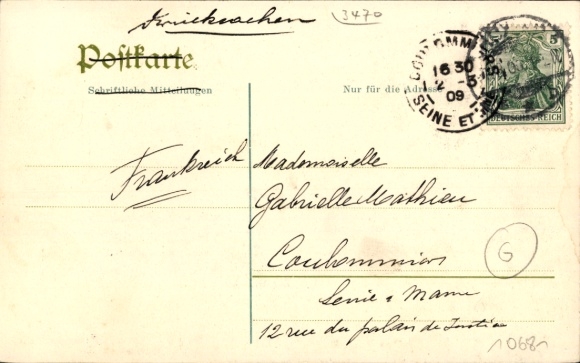 Drucksachen
3470
Postkarte
Schriftliche Mitteilungen
Nur für die Adresse
COULOMMIERS
16 30
2
09
SEINE ET M
5 5
DEUTSCHES REICH
Frankreich
Mademoiselle
Gabrielle Mathieu
Coulommiers
Seine & Marne
12 rue du palais de Justice
G
10681